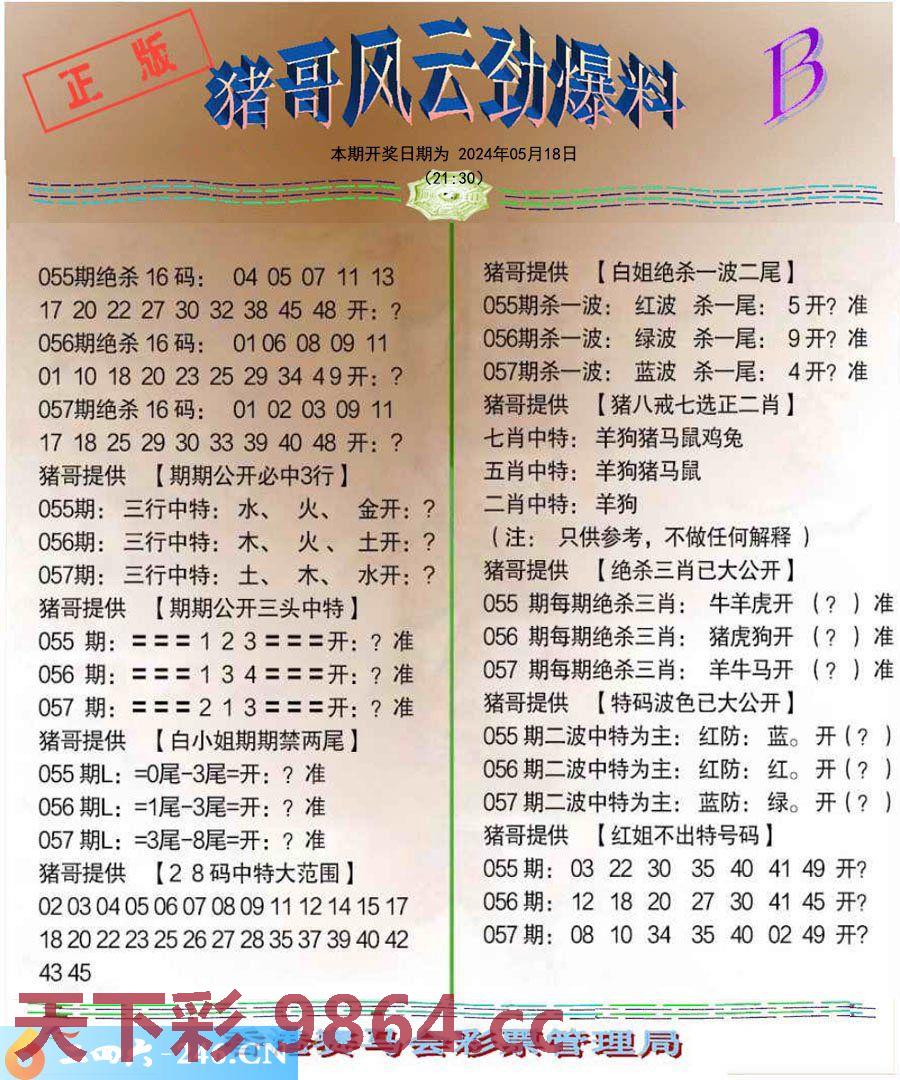 正版
猪哥风云劲爆料
B
本期开奖日期为 2024年05月18日
(21:30)
055期绝杀 16 码： 04 05 07 11 13
17 20 22 27 30 32 38 45 48 开：？
056期绝杀 16 码： 01 06 08 09 11
01 10 18 20 23 25 29 34 4 9 开：？
057期绝杀 16 码： 01 02 03 09 11
17 18 25 29 30 33 39 40 48 开：？
猪哥提供 【期期公开必中3行】
055期： 三行中特： 水、 火、 金开：？
056期： 三行中特： 木、 火、 土开：？
057期： 三行中特： 土、 木、 水开：？
猪哥提供 【期期公开三头中特】
055 期：＝＝＝1 2 3＝＝＝开：？准
056 期：＝＝＝1 3 4＝＝＝开：？准
057 期：＝＝＝2 1 3＝＝＝开：？准
猪哥提供 【白小姐期期禁两尾】
055 期L：=0尾-3尾=开：？准
056 期L：=1尾-3尾=开：？准
057 期L：=3尾-8尾=开：？准
猪哥提供 【2 8 码中特大范围】
02 03 04 05 06 07 08 09 11 12 14 15 17
18 20 22 23 25 26 27 28 35 37 39 40 42
43 45
猪哥提供 【白姐绝杀一波二尾】
055期杀一波： 红波 杀一尾： 5 开？准
056期杀一波： 绿波 杀一尾： 9 开？准
057期杀一波： 蓝波 杀一尾： 4 开？准
猪哥提供 【猪八戒七选正二肖】
七肖中特： 羊狗猪马鼠鸡兔
五肖中特： 羊狗猪马鼠
二肖中特： 羊狗
（注： 只供参考，不做任何解释 ）
猪哥提供 【绝杀三肖已大公开】
055 期每期绝杀三肖： 牛羊虎开 （？）准
056 期每期绝杀三肖： 猪虎狗开 （？）准
057 期每期绝杀三肖： 羊牛马开 （？）准
猪哥提供 【特码波色已大公开】
055 期二波中特为主： 红防： 蓝。 开（？）
056 期二波中特为主： 红防： 红。 开（？）
057 期二波中特为主： 蓝防： 绿。 开（？）
猪哥提供 【红姐不出特号码】
055 期： 03 22 30 35 40 41 49 开？
056 期： 12 18 20 27 30 41 45 开？
057 期： 08 10 34 35 40 02 49 开？
天下彩 9864.cc
二四六-246.CN
赛马会彩票管理局